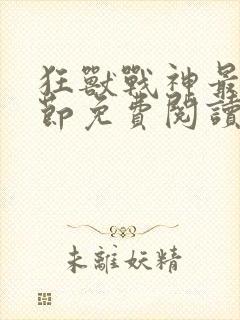 狂獸戰神最
節免費閱讀
未離妖精